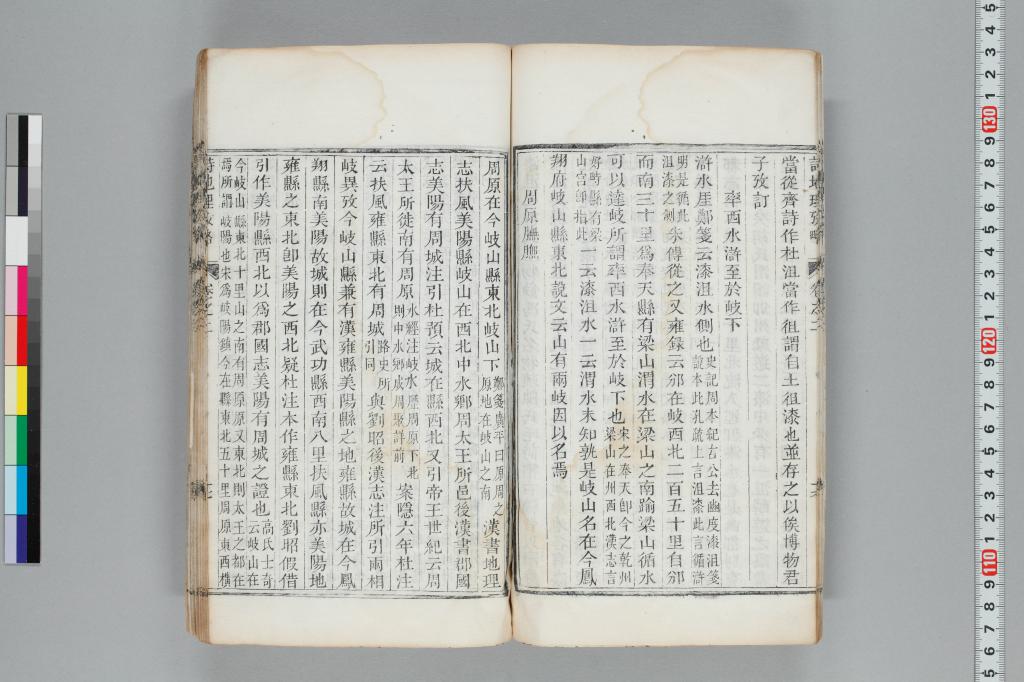 當從齊詩作杜沮當作徂謂自土徂漆也並存之以俟博物君
子攷訂
率西水滸至於岐下
滸水厓鄭箋云漆沮水側也史記周本紀古公去豳度漆沮箋
說本此孔疏上言沮漆此言循滸
明是循此
沮漆之側朱傳從之又雍錄云邠在岐西北二百五十里自邠
而南三十里爲奉天縣有梁山渭水在梁山之南踰梁山循水
可以達岐所謂率西水滸至於岐下也宋之奉天卽今之乾州
梁山在州西北漢志言
好畤縣有梁
山宮卽指此一云漆沮水一云渭水未知孰是岐山名在今鳳
翔府岐山縣東北說文云山有兩岐因以名焉
周原膴膴
周原在今岐山縣東北岐山下鄭箋廣平曰原周之
原地在岐山之南漢書地理
志扶風美陽縣岐山在西北中水鄉周太王所邑後漢書郡國
志美陽有周城注引杜預云城在縣西北又引帝王世紀云周
太王所徙南有周原水經注岐水歷周原下北
則中水鄉成周聚詳前案隱六年杜注
云扶風雍縣東北有周城路史所
引同與劉昭後漢志注所引兩相
岐異攷今岐山縣兼有漢雍縣美陽縣之地雍縣故城在今鳳
翔縣南美陽故城則在今武功縣西南八里扶風縣亦美陽地
雍縣之東北卽美陽之西北疑杜注本作雍縣東北劉昭假借
引作美陽縣西北以爲郡國志美陽有周城之證也高氏士奇
云岐山在
今岐山縣東北十里山之南有周原原又東北則太王之都在
焉所謂岐陽也宋爲岐陽鎮今在縣東北五十里周原東西橫
詩地理攷略
卷之二